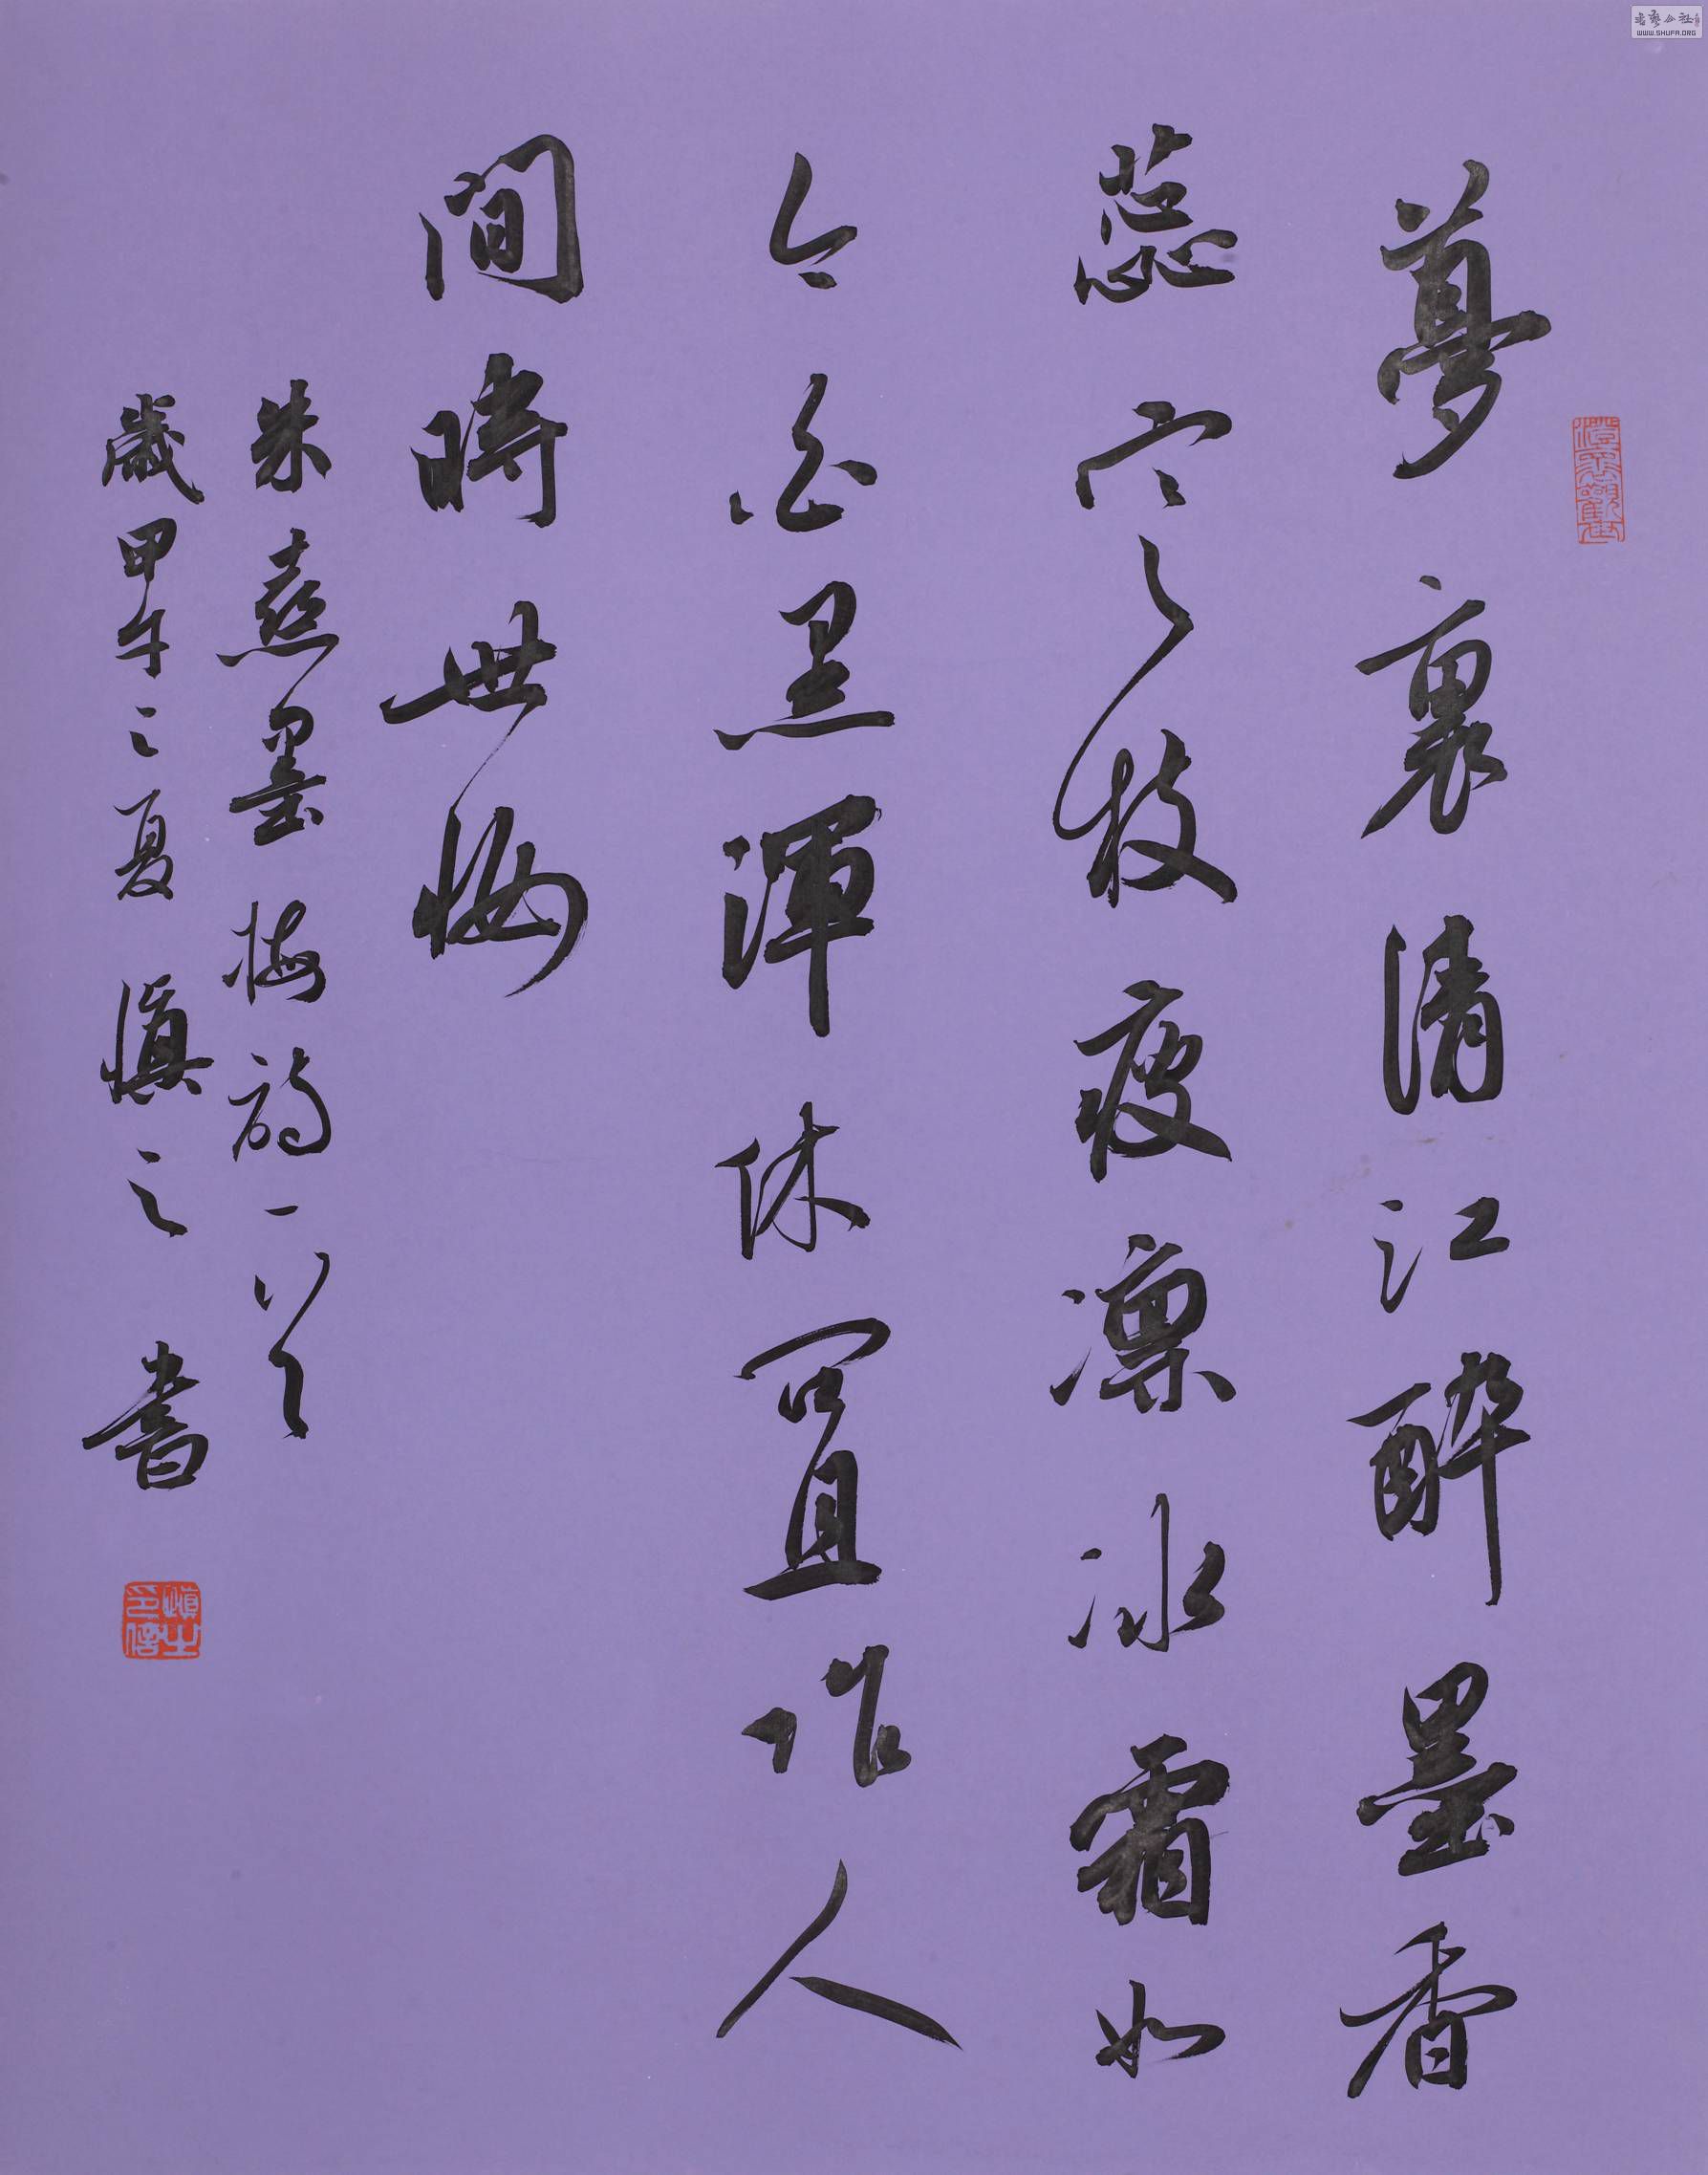 夢裏清江醉墨香
蕊寒枝瘦凜冰霜如
今白黑渾休问且作人
間時世妝
朱熹墨梅詩一首
歲甲午之夏慎之書
慎之印信
書藝公社
WWW.SHUFA.ORG